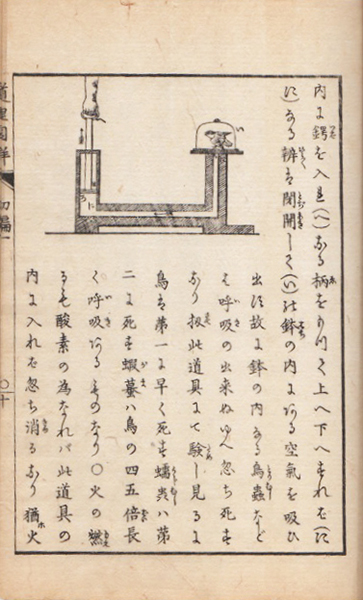 内に鍔を入れ(へ)なる柄をもつて上へ下へすれば(に
に)なる辨は閉開して(い)の鉢の内にある空氣を吸ひ
出す故に鉢の内なる鳥蟲など
は呼吸の出来ぬゆへ忽ち死す
なり扨此道具にて験し見るに
鳥は第一に早く死すハ第
二に死す蝦蟇ハ鳥の四五倍長
く呼吸あるものなり〇火の燃
るも酸素の為なれバ此道具の
内に入れば忽ち消るなり猶火
道理圖解
初編一
〇十